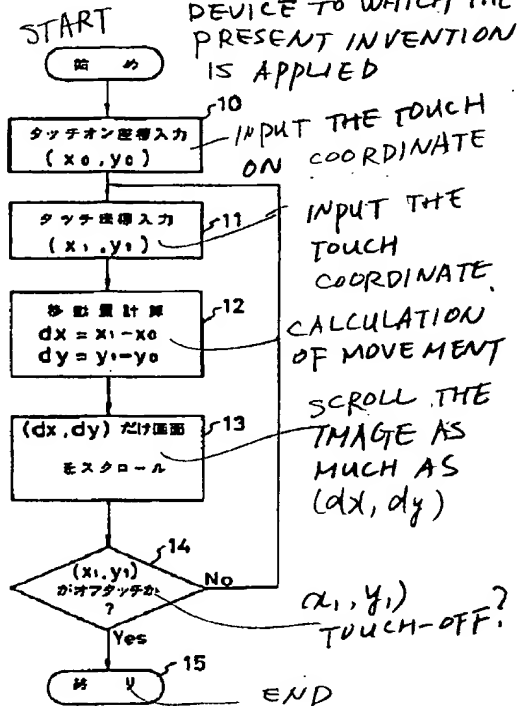 DEVICE TO WHICH THE
PRESENT INVENTION
IS APPLIED
START
始め
10
タッチオン座標入力
(x0,y0)
INPUT THE TOUCH
ON COORDINATE
11
タッチ座標入力
(x1,y1)
INPUT THE
TOUCH
COORDINATE.
12
移動量計算
dx = x1-x0
dy = y1-y0
CALCULATION
OF MOVEMENT
13
(dx,dy)だけ画面
をスクロール
SCROLL THE
IMAGE AS
MUCH AS
(dx, dy)
14
(x1,y1)
がオフタッチか
?
No
x1, y1)
TOUCH-OFF?
Yes
15
終り
END